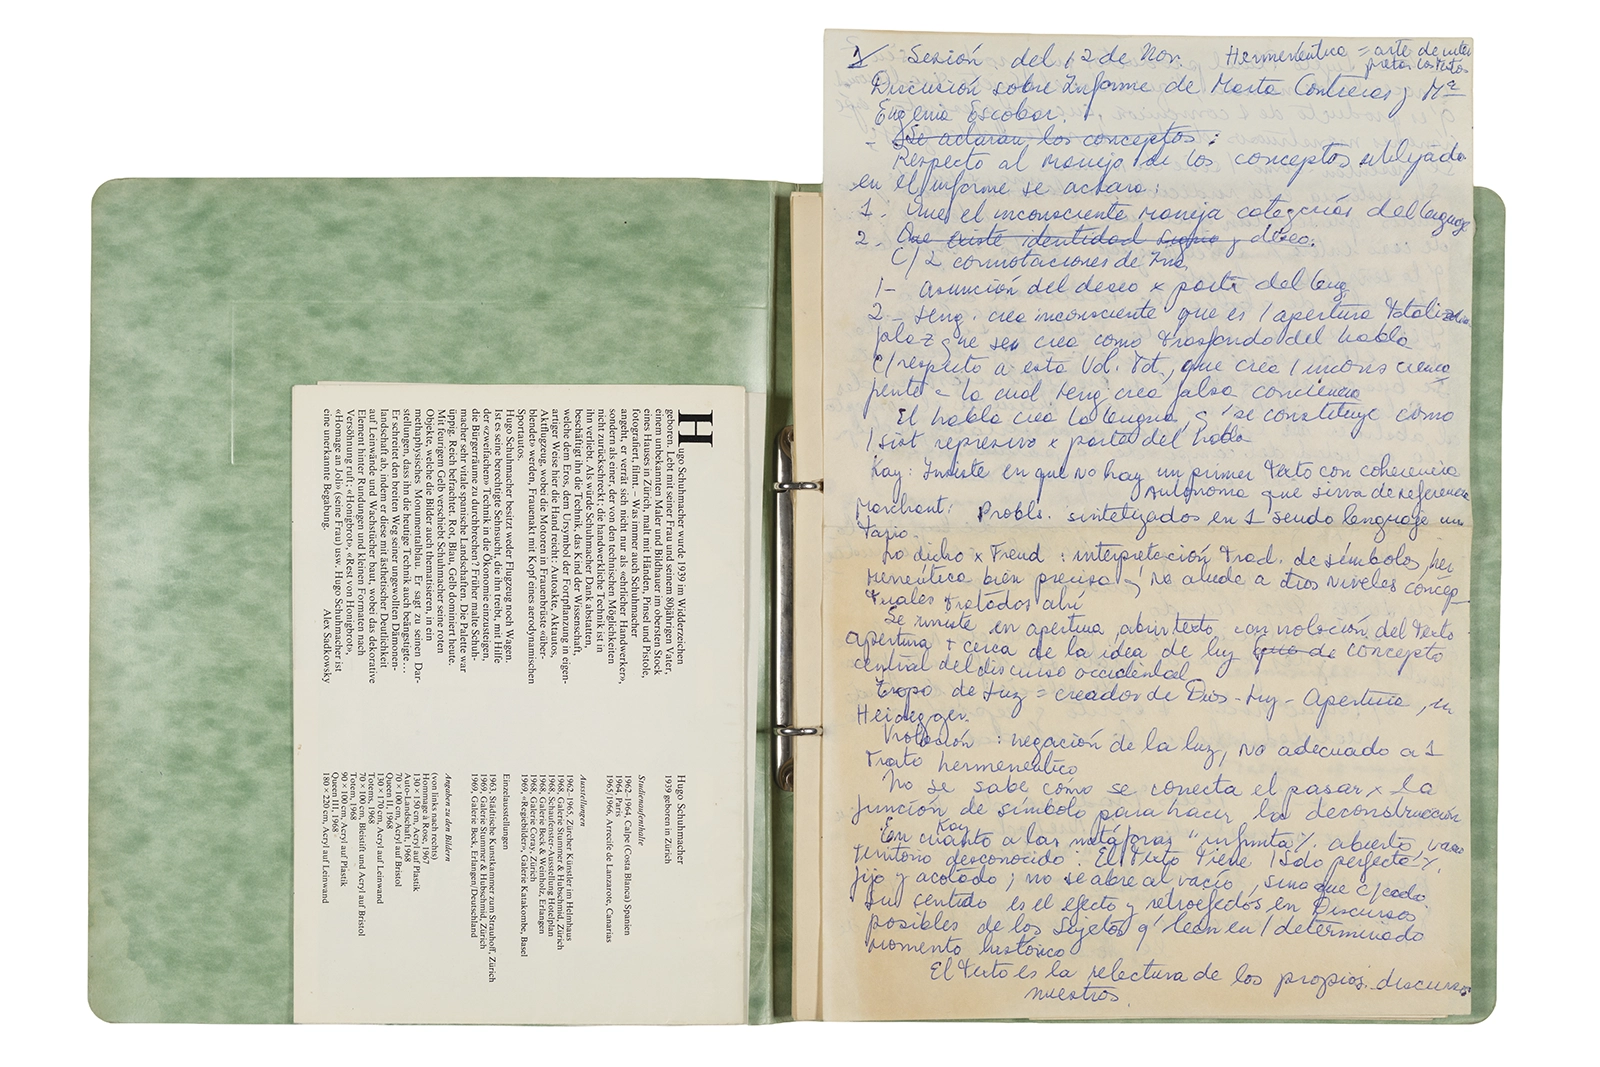 Hugo Schuhmacher wurde 1939 im Widderzeichen
geboren. Lebt mit seiner Frau und seinem 80jährigen Vater,
einem unbekannten Maler und Bildhauer im obersten Stock
eines Hauses in Zürich, malt mit Händen, Pinsel und Pistole,
fotografiert, filmt. – Was immer auch Schuhmacher
angeht, er verrät sich nicht nur als «ehrlicher Handwerker»,
sondern als einer, der von den technischen Möglichkeiten
nicht zurückschreckt: die handwerkliche Technik ist in
ihn verliebt. Als würde Schuhmacher Dank abstatten,
beschäftigt ihn die Technik, das Kind der Wissenschaft,
welche dem Eros, dem Ursymbol der Fortpflanzung in eigen-
artiger Weise hier die Hand reicht: Autoakte, Aktautos,
Aktflugzeug, wobei die Motoren in Frauenbrüste «über-
blendet» werden, Frauenakt mit Kopf eines aerodynamischen
Sportautos.
Hugo Schuhmacher besitzt weder Flugzeug noch Wagen.
Ist es seine berechtigte Sehnsucht, die ihn treibt, mit Hilfe
der «zweifachen» Technik in die Ökonomie einzusteigen,
die Bürgerräume zu durchbrechen? Früher malte Schuh-
macher sehr vitale spanische Landschaften. Die Palette war
üppig. Reich befrachtet. Rot, Blau, Gelb dominiert heute.
Mit feurigem Gelb verschiebt Schuhmacher seine roten
Objekte, welche die Bilder auch thematisieren, in ein
methaphysisches Monumentalblau. Er sagt zu seinen Dar-
stellungen, dass ihn die heutige Technik auch beängstige…
Er schreitet den breiten Weg seiner ungewollten Dämonen-
landschaft ab, indem er diese mit ästhetischer Deutlichkeit
auf Leinwände und Wachstücher baut, wobei das dekorative
Element hinter Rundungen und kleinen Formaten nach
Versöhnung ruft: «Honigbrot», «Rest von Honigbrot»,
«Homage an Joli» (seine Frau) usw. Hugo Schuhmacher ist
eine unerkannte Begabung. Alex Sadkowsky
Hugo Schuhmacher
1939 geboren in Zürich
Studienaufenthalte
1962–1964, Calpe (Costa Blanca) Spanien
1964, Paris
1965/1966, Arrecife de Lanzarote, Canarias
Ausstellungen
1962–1965, Zürcher Künstler im Helmhaus
1968, Galerie Stummer & Hubschmid, Zürich
1968, Schaufenster-Ausstellung Hotelplan
1968, Galerie Beck & Weinholz, Erlangen
1968, Galerie Coray, Zürich
1969, «Regiebilder», Galerie Katakombe, Basel
Einzelausstellungen
1963, Städtische Kunstkammer zum Strauhoff, Zürich
1969, Galerie Stummer & Hubschmid, Zürich
1969, Galerie Beck, Erlangen/Deutschland
Angaben zu den Bildern
(von links nach rechts)
Hommage à Rose, 1967
130 × 150 cm, Acryl auf Plastik
Auto-Landschaft, 1968
70 × 100 cm, Acryl auf Bristol
Queen II, 1968
130 × 170 cm, Acryl auf Leinwand
Totems, 1968
70 × 100 cm, Bleistift und Acryl auf Bristol
Totem, 1968
90 × 100 cm, Acryl auf Plastik
Queen III, 1968
180 × 220 cm, Acryl auf Leinwand
1/ Sesión del 12 de Nov. Hermenéutica = arte de inter
pretar los textos
Discusión sobre Informe de Marta Contreras y Mª
Eugenia Escobar.
- Se aclaran los conceptos :
Respecto al manejo de los conceptos utilizado
en el informe se aclara :
1. Que el inconsciente maneja categorías del lenguaje
2. Que existe identidad signo y deseo.
C/ 2 connotaciones de
1- asunción del deseo x parte del leng
2- Leng. crea inconsciente que es / apertura totaliza
que crea como trasfondo del habla
C/respecto a esta que crea / incons
= la cual leng crea falsa conciencia
El habla crea la lengua, q' se constituye como
/ sist represivo x parte del habla
Kay: Insiste en que no hay un primer texto con coherencia
Autónoma que sirva de referencia
Marchant: Probls. sintetizados en 1 seudo lenguaje
Lo dicho x Freud : interpretación Trad. de símbolo, her
menéutica bien precisa y no alude a dos niveles concep-
tuales tratados ahí
Se insiste en apertura, abrir texto, con violación del texto
apertura + cerca de la idea de luz que de concepto
central del discurso occidental
Tropo de Luz = creador de Dios - Luz - Apertura, en
Heidegger.
Violación : negación de la luz, no adecuado a 1
Trato hermenéutico
No se sabe cómo se conecta el pasar x la
función de símbolo para hacer la deconstrucción
Kay
En cuanto a las metáforas "infinita", abierto, vacío
territorio desconocido. El Texto tiene / sdo perfecto/.
fijo y acotado; no se abre al vacío, sino que c/cada
su sentido es el efecto y retroefectos en Discursos
posibles de los Sujetos q' lean en / determinado
momento histórico
El texto es la relectura de los propios discursos
nuestros.